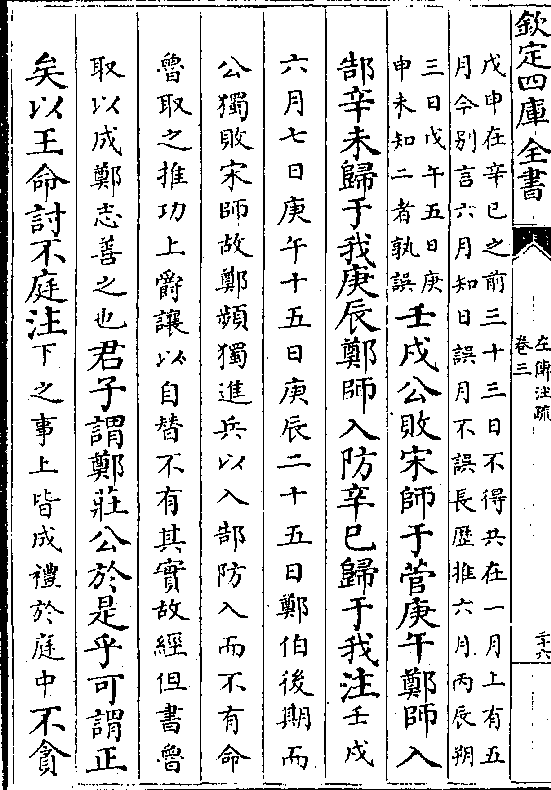 欽定四庫全書
左傳注疏
卷三
三十六
戊申在辛巳之前三十三日不得共在一月上有五
月今别言六月知日誤月不誤長歴推六月丙辰朔
三日戊午五日庚
申未知二者孰誤
壬戌公敗宋師于菅庚午鄭師入
郜辛未歸于我庚辰鄭師入防辛巳歸于我注壬戌
六月七日庚午十五日庚辰二十五日鄭伯後期而
公獨敗宋師故鄭頻獨進兵以入郜防入而不有命
魯取之推功上爵讓以自替不有其實故經但書魯
取以成鄭志善之也君子謂鄭莊公於是乎可謂正
矣以王命討不庭注下之事上皆成禮於庭中不貪